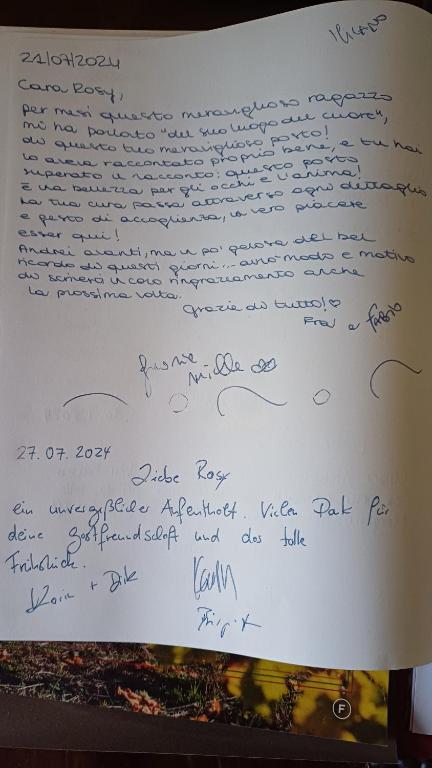 MILANO
21/07/2024
Cara Rosy,
per mesi questo meraviglioso ragazzo
mi ha parlato "del suo luogo del cuore",
di questo tuo meraviglioso posto!
Lo aveva raccontato proprio bene, e tu hai
superato il racconto: questo posto
è una bellezza per gli occhi e l'anima!
La tua cura passa attraverso ogni dettaglio
e gesto di accoglienza, è vero piacere
esser qui!
Andrei avanti, ma un po' gelosa del bel
ricordo di questi giorni... avrò modo e motivo
di scriverti un caro ringraziamento anche
la prossima volta.
Grazie di tutto! ♡
Fra e Fabio
grazie
mille
27.07.2024
Liebe Rosy
ein unvergeßlicher Aufenthalt. Vielen Dank für
deine Gastfreundschaft und das tolle
Frühstück.
Karin + Dirk
Birgit
F